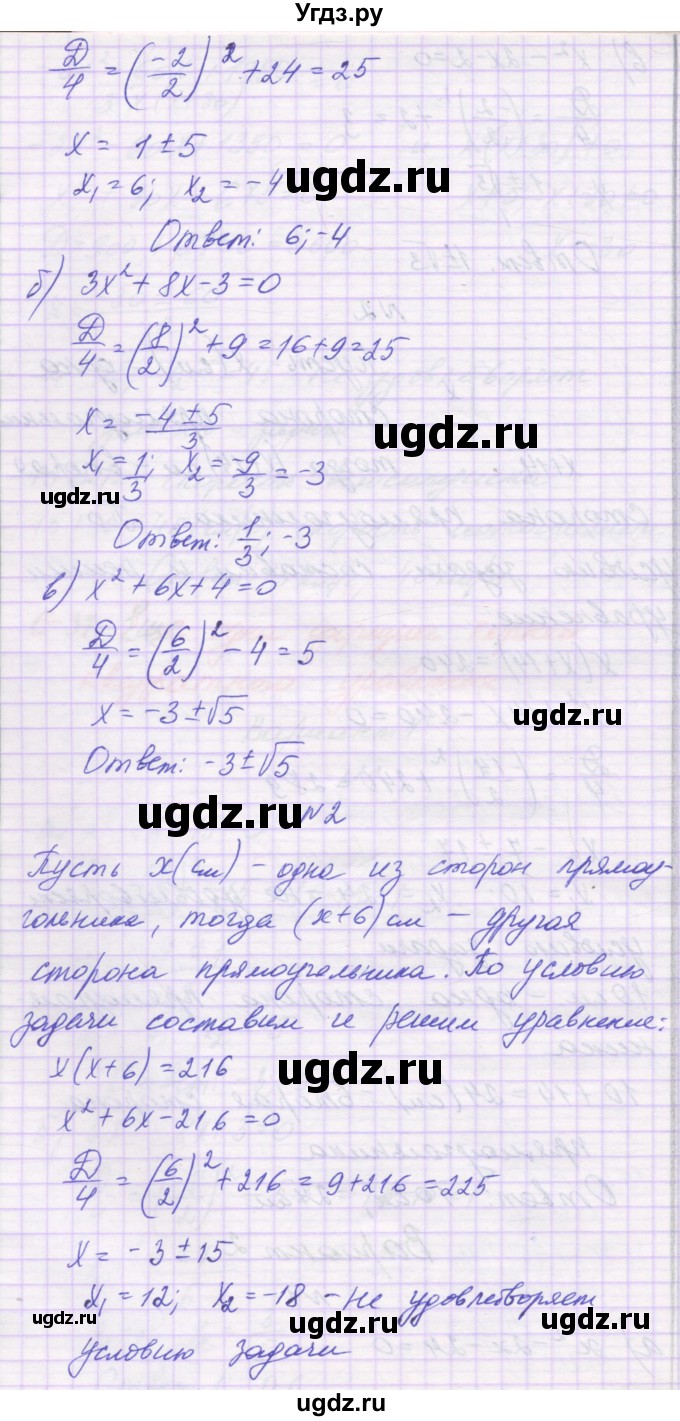 Угдз.ру
D/4 = (-2/2)² + 24 = 25
x = 1 ± 5
x₁ = 6; x₂ = -4
ugdz.ru
Ответ: 6; -4
б) 3x² + 8x - 3 = 0
D/4 = (8/2)² + 9 = 16 + 9 = 25
x = (-4 ± 5)/3
ugdz.ru
x₁ = 1/3; x₂ = -9/3 = -3
ugdz.ru
Ответ: 1/3; -3
в) x² + 6x + 4 = 0
D/4 = (6/2)² - 4 = 5
x = -3 ± √5
ugdz.ru
Ответ: -3 ± √5
ugdz.ru
N2
Пусть x(см) - одна из сторон прямоу-
гольника, тогда (x+6)см - другая
сторона прямоугольника. По условию
задачи составим и решим уравнение:
x(x+6) = 216
ugdz.ru
x² + 6x - 216 = 0
D/4 = (6/2)² + 216 = 9 + 216 = 225
x = -3 ± 15
x₁ = 12; x₂ = -18 - не удовлетворяет
ugdz.ru ugdz.ru ugdz.ru
условию задачи
ugdz.ru